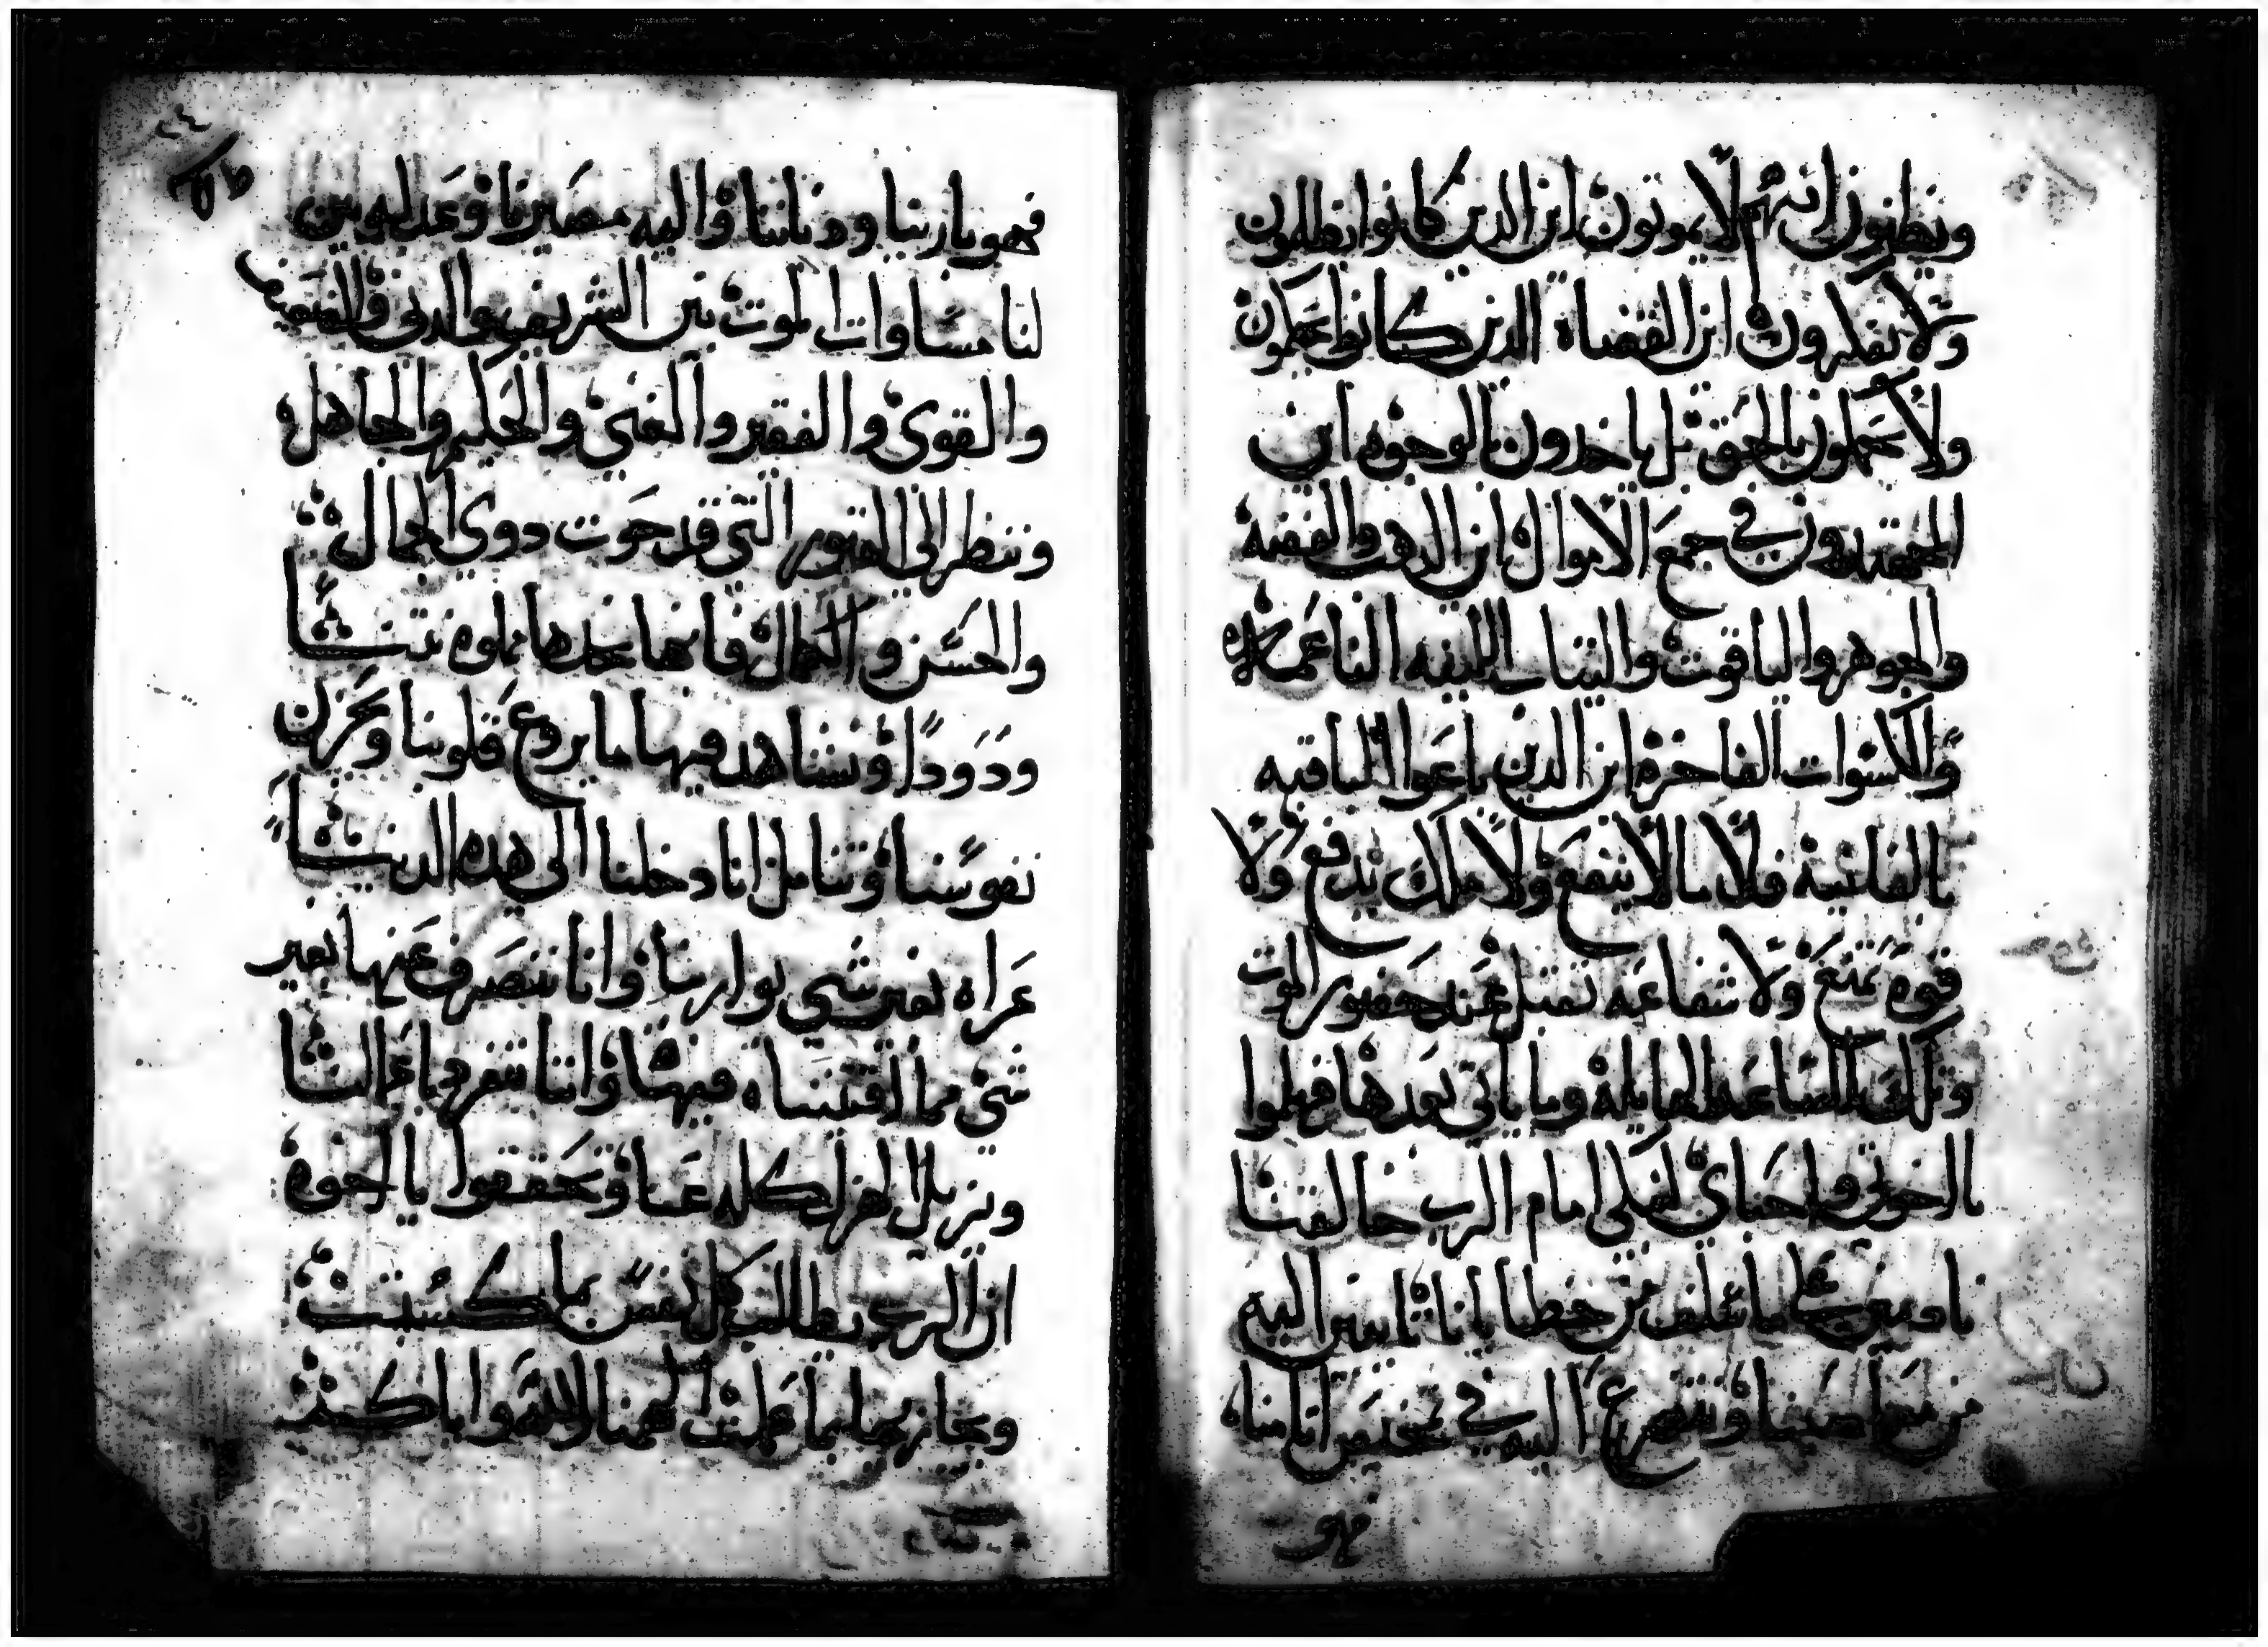 ويظنون انهم لا يموتون اين الدين كانوا يظلمون
ولا يفكرون اين القضاه الدين كانوا يحكمون
ولا يحكمون بالحق بل ياخدون بالوجوه اين
المجتهدون في جمع الاموال اين الدهب والفضه
والجوهر والياقوت والثياب اللينه الناعمه
والاكسوات الفاخره اين الدين باعوا الباقيه
بالفانيه فلا مال ينفع ولا ملك يدفع ولا
قوه تمنع ولا شفاعه تقبل عند حضور الموت
وتلك الساعه الهايله وما ياتي بعدها فهلموا
يا اخوتي واحباي لنبكي امام الرب خالقنا
نادمين على ما سلف من خطايانا تايبين اليه
من معاصينا ونتضرع اليه في تمحيص اتامنا
فهو
فهو بارينا ودياننا واليه مصيرنا وعد ليوبين
لنا مساوات الموت بين الشريف والدني والضعيف
والقوي والفقير والغني والحكيم والجاهل
وننظر الى القبور التي قد حوت دوي الجمال
والحسن والكمال فانها نجدها مملوه نتنا
ودودا ونشاهد فيها ما يردع قلوبنا ويحزن
نفوسنا ونتامل انا دخلنا الى هده الدنيا
عراه بغير شي يوارينا وانا ننصرف عنها بغير
شي مما اقتنيناه فيها واننا نتفرد باعمالنا
ويزيل الهزل كله عنا وتحققوا يا اخوه
ان الرب يطالب كل نفس بما كسبت
ويجازيها بما عملت الهمنا الله واياكم